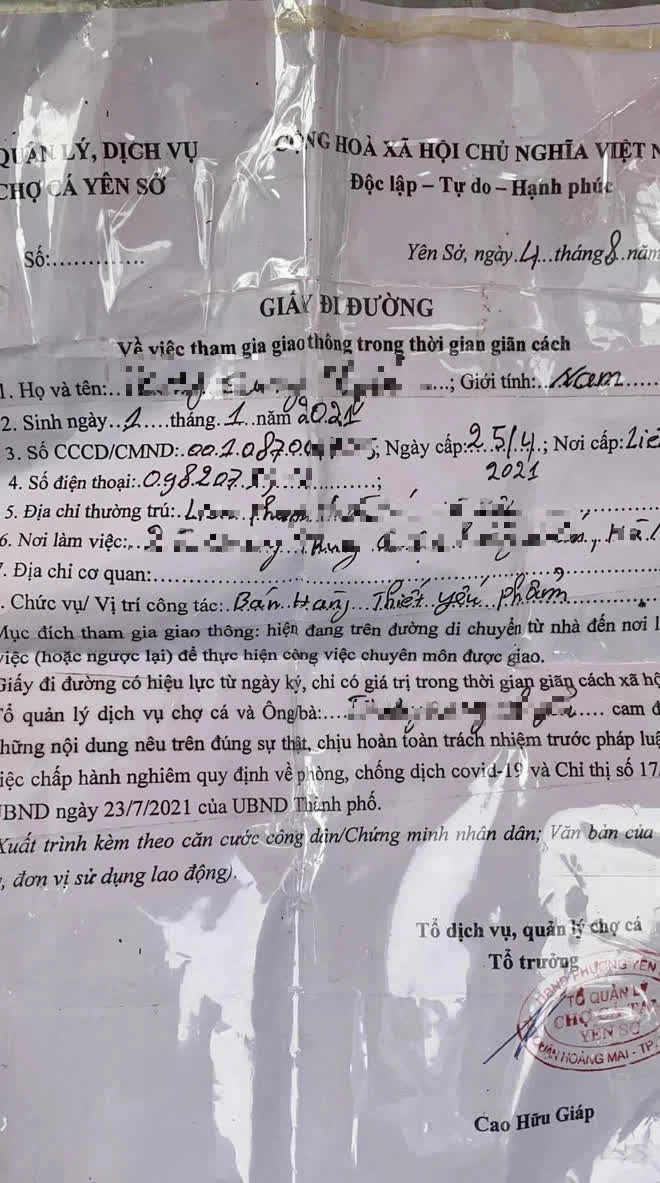 QUẢN LÝ, DỊCH VỤ
CHỢ CÁ YÊN SỞ
CỘNG HOÀ XÃ HỘI CHỦ NGHĨA VIỆT N
Độc lập – Tự do – Hạnh phúc
Số:.............
Yên Sở, ngày.4...tháng 8.năm
GIẤY ĐI ĐƯỜNG
Về việc tham gia giao thông trong thời gian giãn cách
1. Họ và tên:.. ...; Giới tính:..Nam......
2. Sinh ngày..1....tháng.1.năm 2021
3. Số CCCD/CMND:.001.0870 ; Ngày cấp:.25/4.; Nơi cấp:
2021
4. Số điện thoại:.098207. .............;
5. Địa chỉ thường trú:..
6. Nơi làm việc:..
7. Địa chỉ cơ quan:...............................
. Chức vụ/ Vị trí công tác:..Bán..Hàng..Thiết..yếu..phẩm
Mục đích tham gia giao thông: hiện đang trên đường di chuyển từ nhà đến nơi l
việc (hoặc ngược lại) để thực hiện công việc chuyên môn được giao.
Giấy đi đường có hiệu lực từ ngày ký, chỉ có giá trị trong thời gian giãn cách xã hộ
Tổ quản lý dịch vụ chợ cá và Ông/bà:.... .... cam đ
những nội dung nêu trên đúng sự thật, chịu hoàn toàn trách nhiệm trước pháp luậ
iệc chấp hành nghiêm quy định về phòng, chống dịch covid-19 và Chỉ thị số 17/
UBND ngày 23/7/2021 của UBND Thành phố.
Xuất trình kèm theo căn cước công dân/Chứng minh nhân dân; Văn bản của
, đơn vị sử dụng lao động).
Tổ dịch vụ, quản lý chợ cá
Tổ trưởng
UBND PHƯỜNG YÊN
TỔ QUẢN LÝ
CHỢ CÁ
YÊN SỞ
QUẬN HOÀNG MAI - TP.
Cao Hữu Giáp